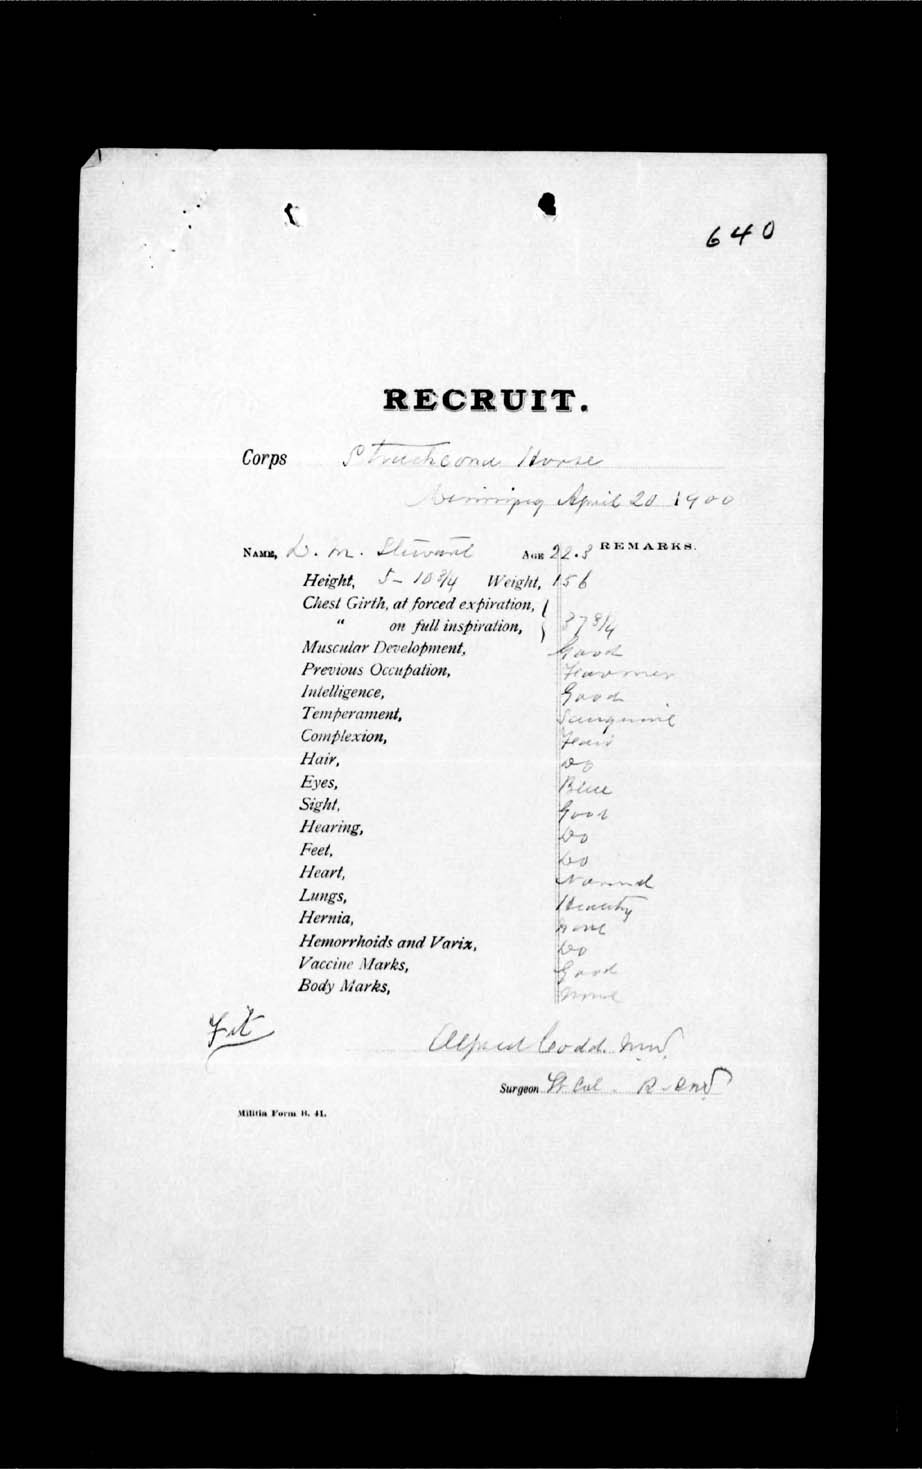 640
RECRUIT.
Corps Strathcona Horse
Winnipeg April 20 1900
NAME, D. M. Stewart AGE 22.3 REMARKS.
Height, 5-10 3/4 Weight, 156
Chest Girth, at forced expiration,
" on full inspiration, 37 3/4
Muscular Development, Good
Previous Occupation, Farmer
Intelligence, Good
Temperament, Sanguine
Complexion, Fair
Hair, Do
Eyes, Blue
Sight, Good
Hearing, Do
Feet, Do
Heart, Normal
Lungs, Healthy
Hernia, None
Hemorrhoids and Varix, Do
Vaccine Marks, Good
Body Marks, None
Fit
Alfred Codd. M.D.
Surgeon Lt Col.
Militia Form B. 41.